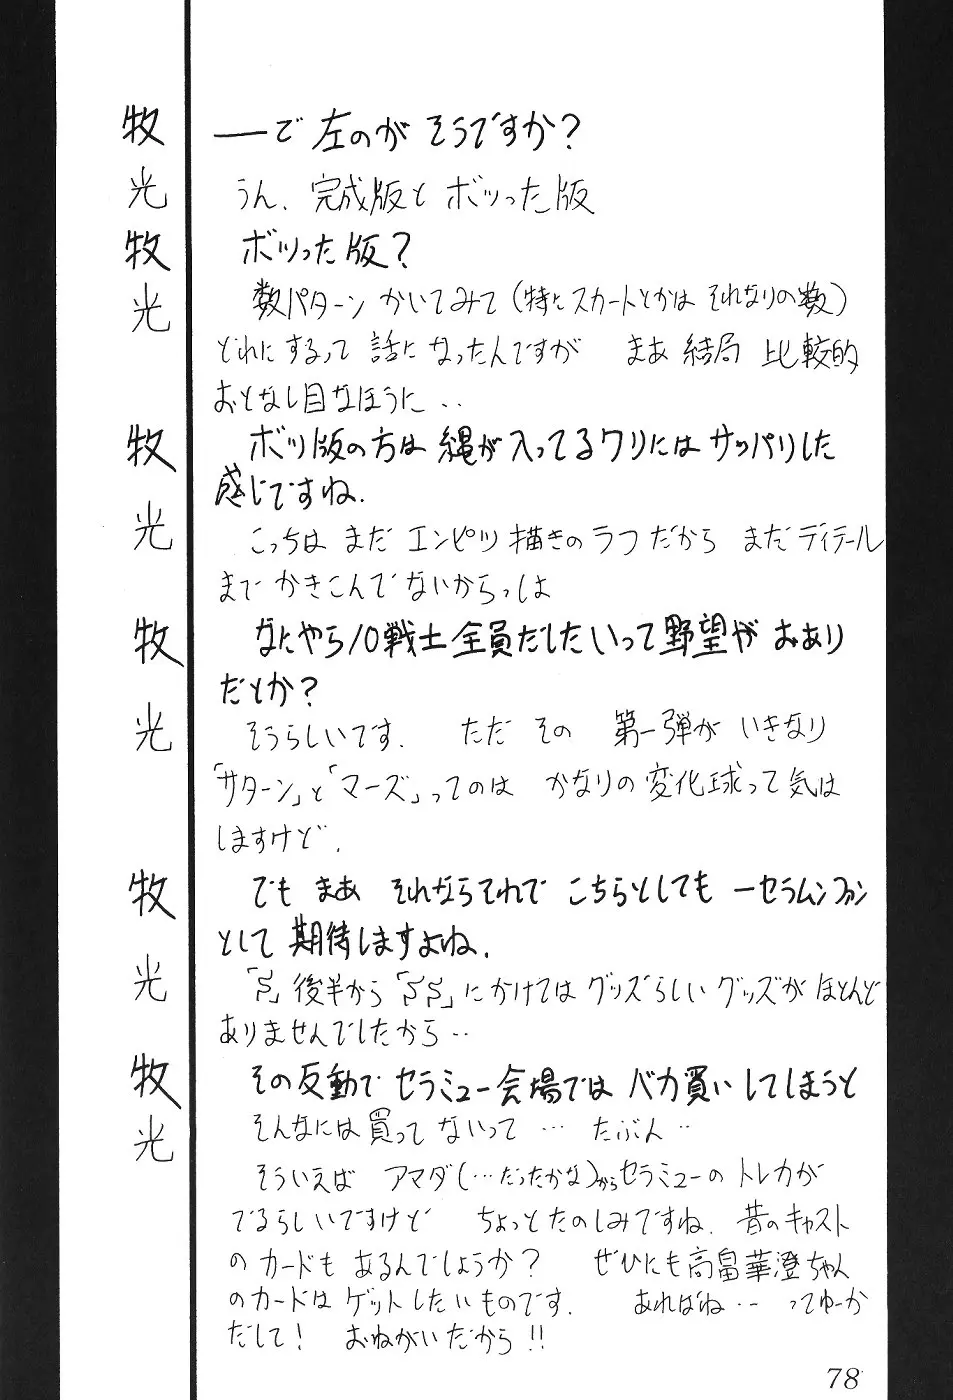 牧 ――で 左のが そうですか？
光 うん、完成版と ボツった版
牧 ボツった版？
光 数パターン かいてみて（特にスカートとかは それなりの数）
どれにするって 話になったんですが まあ 結局 比較的
おとなし目なほうに‥
牧 ボツ版の方は 縄が入ってるワリにはサッパリした
感じですね.
光 こっちは まだ エンピツ描きのラフだから まだディテール
まで かきこんでないからっしょ
牧 なにやら10戦士全員だしたいって野望が おあり
だとか？
光 そうらしいです. ただ その 第一弾が いきなり
「サターン」と「マーズ」ってのは かなりの変化球って気は
しますけど.
牧 でも まあ それならそれで こちらとしても 一セラムンファン
として 期待しますよね.
光 「S」後半から「SS」にかけてはグッズらしいグッズが ほとんど
ありませんでしたから‥
牧 その反動で セラミュー会場では バカ買いしてしまうと
光 そんなには買ってないって … たぶん‥
そういえば アマダ（…だったかな）からセラミューのトレカが
でるらしいですけど ちょっとたのしみですね. 昔のキャスト
のカードも あるんでしょうか？ ぜひにも高畠華澄ちゃん
のカードは ゲットしたいものです. あればね‥ ってゆーか
だして！ おねがいだから!!
78